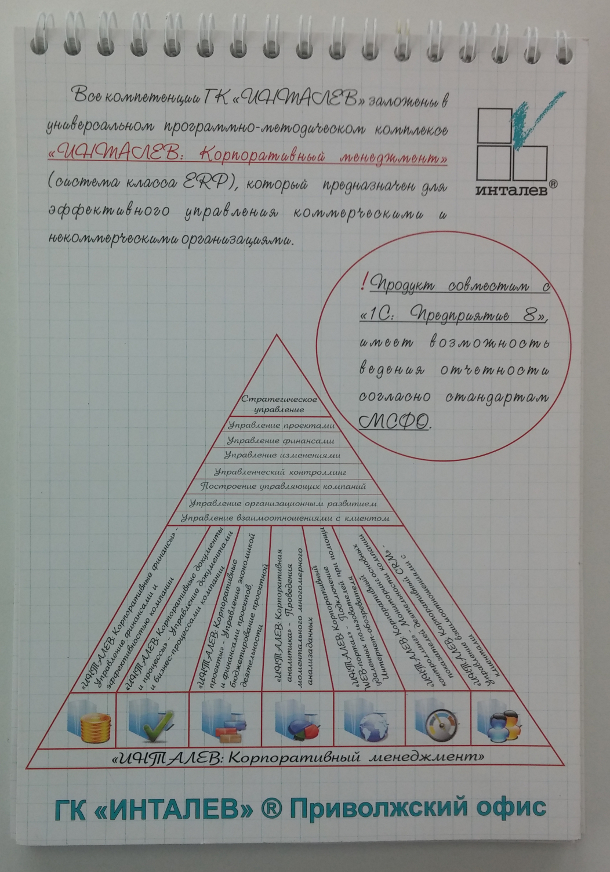 Все компетенции ГК «ИНТАЛЕВ» заложены в
универсальном программно-методическом комплексе
«ИНТАЛЕВ: Корпоративный менеджмент»
(система класса ERP), который предназначен для
эффективного управления коммерческими и
некоммерческими организациями.
инталев®
!Продукт совместим с
«1С: Предприятие 8»,
имеет возможность
ведения отчетности
согласно стандартам
МСФО.
Стратегическое
управление
Управление проектами
Управление финансами
Управление изменениями
Управленческий контроллинг
Построение управляющих компаний
Управление организационным развитием
Управление взаимоотношениями с клиентом
«ИНТАЛЕВ: Корпоративные финансы» -
Управление финансами и
эффективностью компании
«ИНТАЛЕВ: Корпоративные документы
и процессы» - Управление документами
и бизнес-процессами компании
«ИНТАЛЕВ: Корпоративные
проекты» - Управление экономикой
и финансами проектов
Бюджетирование проектной
деятельности
«ИНТАЛЕВ: Корпоративная
аналитика» - Проведения
моментального многомерного
анализа данных
«ИНТАЛЕВ: Корпоративный
WEB-портал» - Подключение
«ИНТАЛЕВ: Корпоративный
«ИНТАЛЕВ: Корпоративный CRM» -
«ИНТАЛЕВ: Корпоративный менеджмент»
ГК «ИНТАЛЕВ» ® Приволжский офис